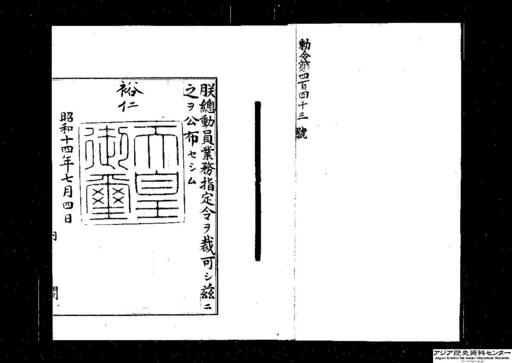 勅令第四百四十三號
朕總動員業務指定令ヲ裁可シ茲ニ
之ヲ公布セシム
裕仁
天皇御璽
昭和十四年七月四日
内閣
アジア歴史資料センター
Japan Center for Asian Historical Records